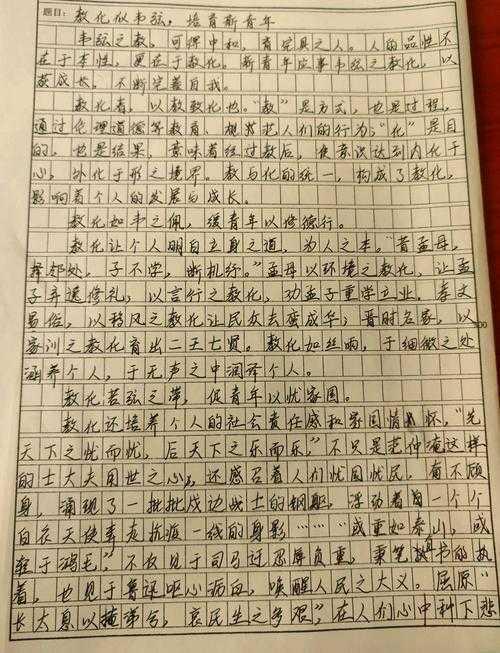 题目：教化似韦弦，培育新青年
韦弦之教，可得中和，育完具之人。人的品性不
在于本性，更在于教化。新青年应事韦弦之教化，以
获成长，不断完善自我。
教化者，以教致化也。"教"是方式，也是过程，
通过伦理道德等教育、规范人们的行为；"化"是目
的，也是结果，意味着经过教后，使意识达到内化于
心，外化于形之境界。教与化的统一，构成了教化，
影响着个人的发展与成长。
教化如韦之佩，缓青年以修德行。
教化让个人明白立身之道，为人之本。"昔孟母，
择邻处，子不学，断机杼。"孟母以环境之教化，让孟
子弃逸修礼；以言行之教化，劝孟子重学立业。孝文
易俗，以移风之教化让民众去蛮成华；晋时名家，以
家训之教化育出二王七贤。教化如丝响，于细微之处
涵养个人，于无声之中润泽个人。
教化若弦之带，促青年以忧家国。
教化还培养个人的社会责任感和家国情怀，"先
天下之忧而忧，后天下之乐而乐，"不只是范仲淹这样
的士大夫用世之心，还感召着人们忧国忧民，奋不顾
身，涌现了一批批戍边战士的钢躯，浮动着一个个
白衣天使奔走抗疫一线的身影……"或重如泰山，或
轻于鸿毛"，不仅见于司马迁忍辱负重，秉笔直书的执
着，也见于鲁迅呕心沥血，唤醒人民之大义。屈原"
长太息以掩涕兮，哀民生之多艰"，在人们心中种下悲